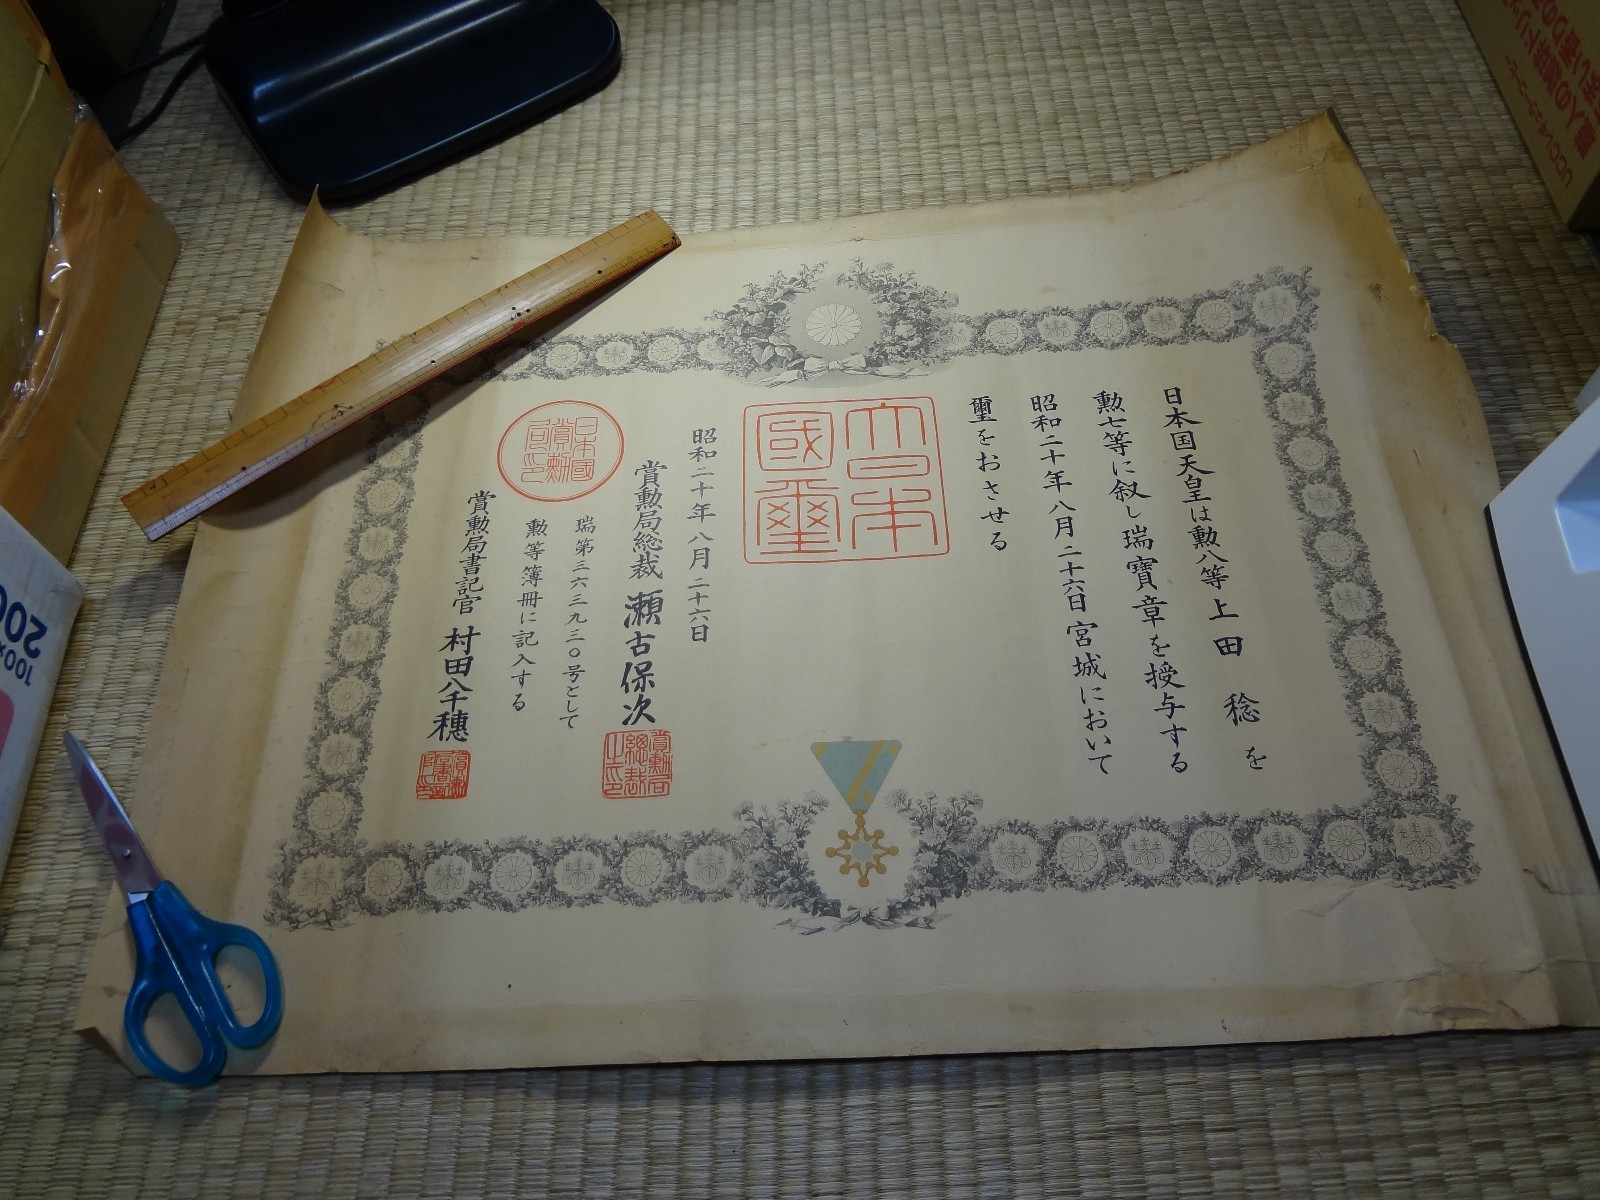 日本国天皇は勲八等上田稔を
勲七等に叙し瑞寶章を授与する
昭和二十年八月二十六日宮城において
璽をおさせる
大日本
國璽
昭和二十年八月二十六日
賞勲局総裁 瀬古保次
賞勲局総裁之印
日本國
賞勲
局印
瑞第三六三九三〇号として
勲等簿冊に記入する
賞勲局書記官 村田八千穂
200
100×